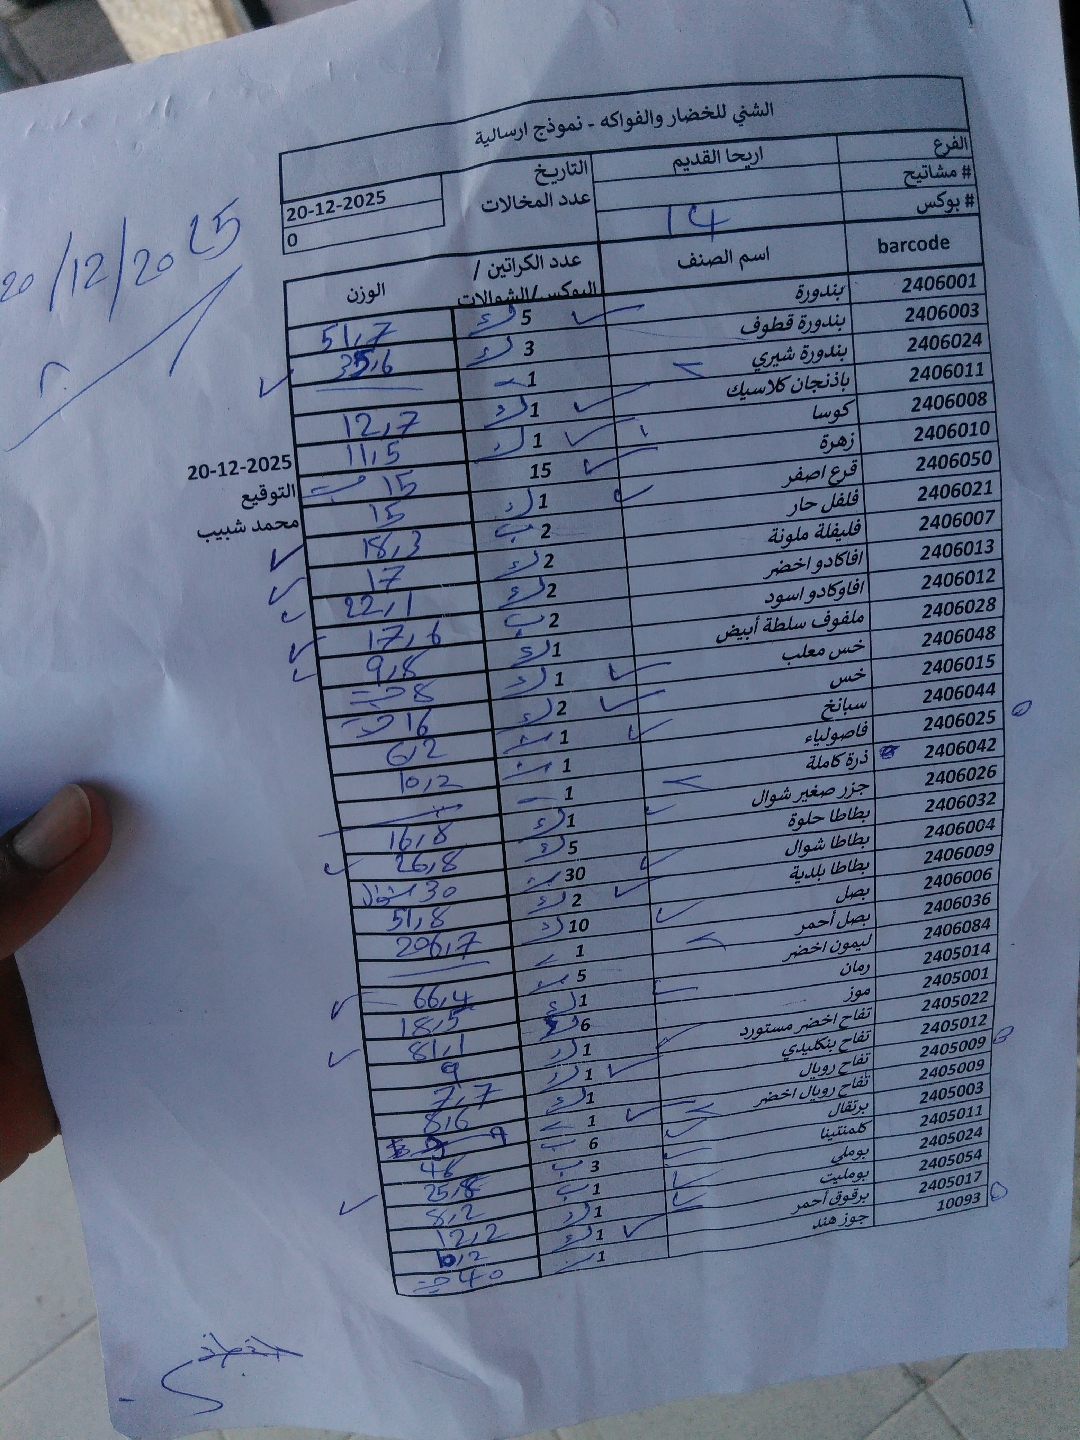 الشني للخضار والفواكه - نموذج ارسالية
الفرع اريحا القديم التاريخ 20-12-2025
# مشاتيح عدد المخالات 0
# بوكس 14
20/12/2025
barcode اسم الصنف عدد الكراتين / البوكس/الشوالات الوزن
2406001 بندورة 5 ك 51,7
2406003 بندورة قطوف 3 ك 35,6
2406024 بندورة شيري 1
2406011 باذنجان كلاسيك 1 ك 12,7
2406008 كوسا 1 ك 11,5
2406010 زهرة 15 15
2406050 قرع اصفر 1 ك 15
2406021 فلفل حار 2 ب 18,3
2406007 فليفلة ملونة 2 ك 17
2406013 افاكادو اخضر 2 ك 22,1
2406012 افاوكادو اسود 2 ب 17,6
2406028 ملفوف سلطة أبيض 1 ك 9,8
2406048 خس معلب 1 ك 8
2406015 خس 2 ك 16
2406044 سبانخ 1 6,2
2406025 فاصولياء 1 10,2
2406042 ذرة كاملة 1
2406026 جزر صغير شوال 1 ك 16,8
2406032 بطاطا حلوة 5 ك 26,8
2406004 بطاطا شوال 30 30 شوال
2406009 بطاطا بلدية 2 ك 51,8
2406006 بصل 10 ك 206,7
2406036 بصل أحمر 1
2406084 ليمون اخضر 5 66,4
2405014 رمان 1 ك 18,5
2405001 موز 6 81,1
2405022 تفاح اخضر مستورد 1 ك 9
2405012 تفاح بنكليدي 1 ك 7,7
2405009 تفاح رويال 1 ك 8,6
2405009 تفاح رويال اخضر 1
2405003 برتقال 6 ب 46
2405011 كلمنتينا 3 ب 25,8
2405024 بوملي 1 ب 8,2
2405054 بومليت 1 ك 12,2
2405017 برقوق أحمر 1 ك 10,2
10093 جوز هند 1 40
20-12-2025
التوقيع
محمد شبيب